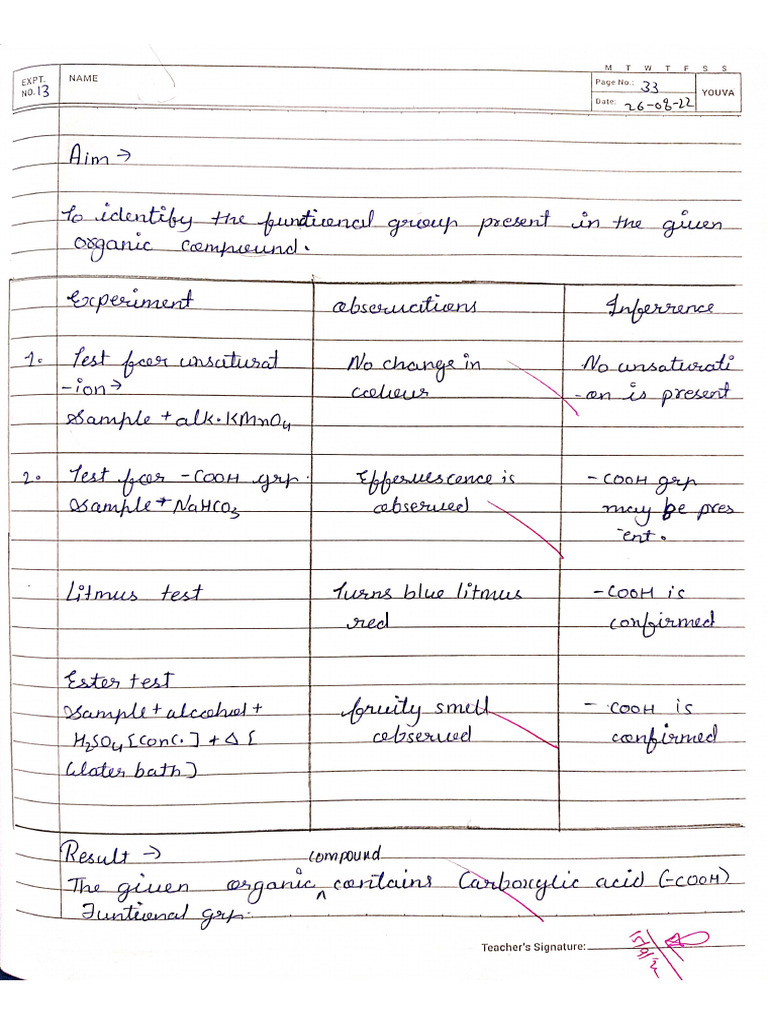 M T W T F S S
EXPT. NO. 13
NAME
Page No.: 33
Date: 26-08-22
YOUVA
Aim →
To identify the functional group present in the given
organic compound.
Experiment observations Inferrence
1. Test for unsaturat No change in No unsaturati
-ion→ colour -on is present
Sample + alk. KMnO4
2. Test for -COOH grp. Effervescence is -COOH grp
Sample + NaHCO3 observed may be pres
-ent.
Litmus test Turns blue litmus -COOH is
red confirmed
Ester test
Sample + alcohol + fruity smell -COOH is
H2SO4 [conc.] + Δ [ observed confirmed
Water bath]
Result →
compound
The given organic ^ contains Carboxylic acid (-COOH)
Funtional grp.
Teacher's Signature: